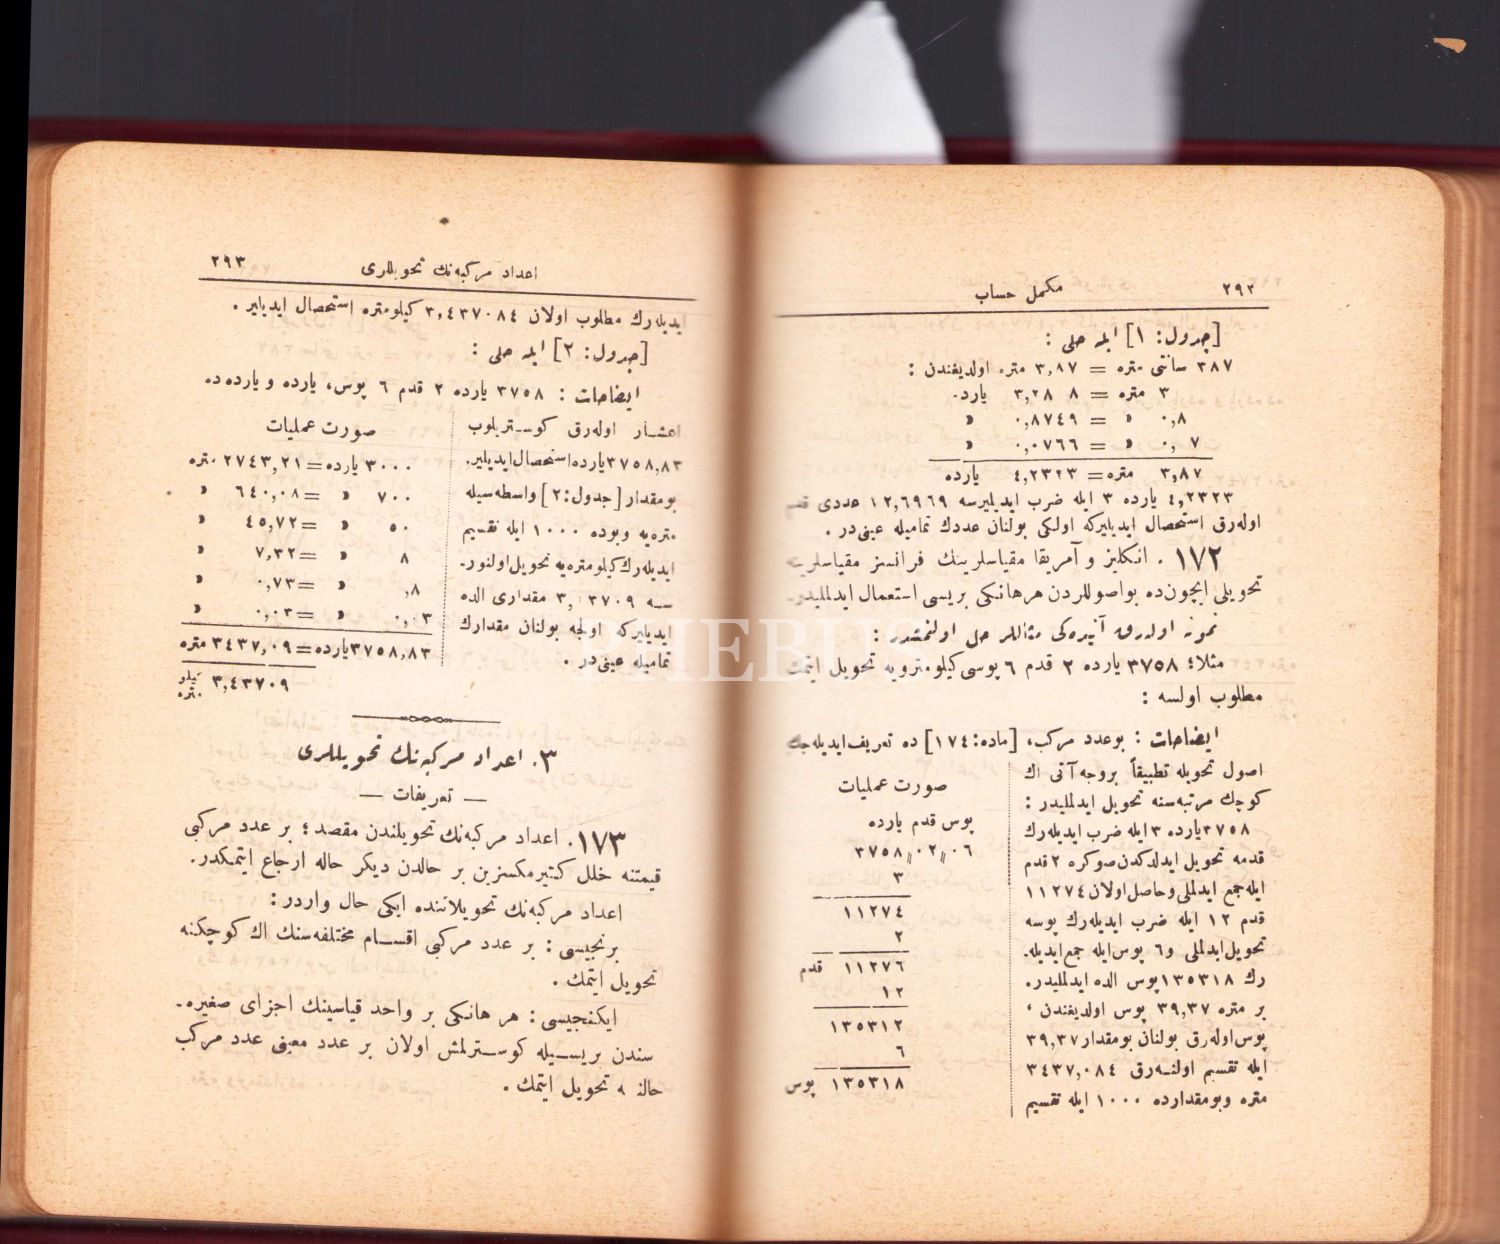 ٢٩٢
مكمل حساب
[جدول: ١] ايله حلی :
٣٨٧ سانتی متره = ٣,٨٧ متره اولديغندن :
٣ متره = ٣,٢٨٠٨ يارد.
٠,٨ » = ٠,٨٧٤٩ »
٠,٠٧ » = ٠,٠٧٦٦ »
٣,٨٧ متره = ٤,٢٣٢٣ يارده
٤,٢٣٢٣ يارده ٣ ايله ضرب ايديليرسه ١٢,٦٩٦٩ عددی قدم
اوله‌رق استحصال ايديليركه اولكی بولنان عددك تماميله عينی‌در .
١٧٢ . انكليز و آمريقا مقياسلرينك فرانسز مقياسلرينه
تحويلی ايچون‌ده بواصوللردن هرهانكی بريسی استعمال ايدلمليدر.
نمونه اوله‌رق آتيده‌كی مثاللر حل اولنمشدر :
مثلا؛ ٣٧٥٨ يارده ٢ قدم ٦ پوسی كيلومترويه تحويل ايتمك
مطلوب اولسه :
ايضاحات : بوعدد مركب، [ماده: ١٧٤] ده تعريف‌ايديله‌جك
اصول تحويله تطبيقاً بروجه‌آتی اك
كوچك مرتبه‌سنه تحويل ايدلمليدر :
٣٧٥٨يارده ٣ايله ضرب ايديله‌رك
قدمه تحويل ايدلدكدن‌صوكره ٢قدم
ايله‌جمع ايدلملی‌وحاصل‌اولان ١١٢٧٤
قدم ١٢ ايله ضرب ايديله‌رك پوسه
تحويل‌ايدلملی و٦ پوس‌ايله جمع‌ايديله‌-
رك ١٣٥٣١٨پوس الده ايدلمليدر.
بر متره ٣٩,٣٧ پوس اولديغندن ،
پوس‌اوله‌رق بولنان بومقدار٣٩,٣٧
ايله تقسيم اولنه‌رق ٣٤٣٧,٠٨٤
متره وبومقدارده ١٠٠٠ ايله تقسيم
صورت عمليات
پوس قدم يارده
٣٧٥٨،،٠٢،،٠٦
٣
١١٢٧٤
٢
١١٢٧٦ قدم
١٢
١٣٥٣١٢
٦
١٣٥٣١٨ پوس
اعداد مركبه‌نك تحويللری
٢٩٣
ايديله‌رك مطلوب اولان ٣,٤٣٧٠٨٤ كيلومتره استحصال ايديلير .
[جدول: ٢] ايله حلی :
ايضاحات : ٣٧٥٨ يارده ٢ قدم ٦ پوس، يارده و يارده‌ده
اعشار اوله‌رق كوستريلوب
٣٧٥٨,٨٣يارده‌استحصال‌ايديلير.
بومقدار [جدول:٢] واسطه‌سيله
متره‌يه وبوده ١٠٠٠ ايله تقسيم
ايديله‌رك‌كيلومتره‌يه تحويل‌اولنور-
سه ٣,٤٣٧٠٩ مقداری الده
ايديليركه اولجه بولنان مقدارك
تماميله عينی‌در .
صورت عمليات
٣٠٠٠ يارده=٢٧٤٣,٢١ متره
٧٠٠ » =٦٤٠,٠٨ »
٥٠ » =٤٥,٧٢ »
٨ » =٧,٣٢ »
٠,٨ » =٠,٧٣ »
٠,٠٣ » =٠,٠٣ »
٣٧٥٨,٨٣يارده=٣٤٣٧,٠٩ متره
٣,٤٣٧٠٩ كيلومتره
٣. اعداد مركبه‌نك تحويللری
— تعريفات —
١٧٣. اعداد مركبه‌نك تحويلندن مقصد؛ بر عدد مركبی
قيمتنه خلل كتيرمكسزين بر حالدن ديكر حاله ارجاع ايتمكدر.
اعداد مركبه‌نك تحويلاتنده ايكی حال واردر :
برنجيسی : بر عدد مركبی اقسام مختلفه‌سنك اك كوچكنه
تحويل ايتمك .
ايكنجيسی : هر هانكی بر واحد قياسينك اجزای صغيره-
سندن بريسيله كوسترلمش اولان بر عدد معينی عدد مركب
حالنه تحويل ايتمك .
PHEBUS